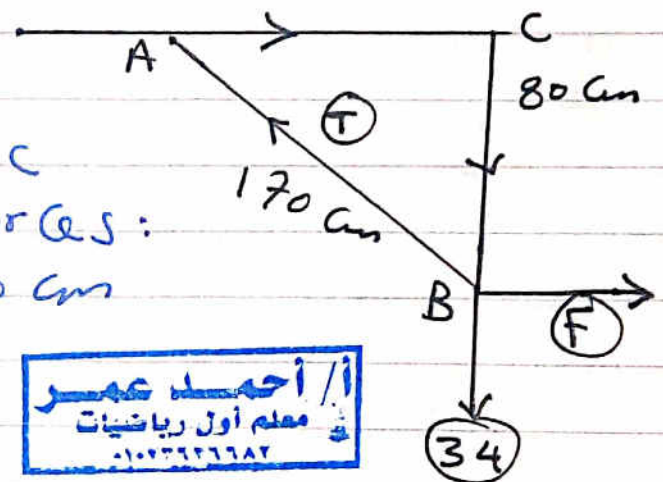 A
C
80 cm
T
170 cm
C
rces:
cm
B
F
34
أ/ أحمد عمر
معلم أول رياضيات
٠١٠٢٣٦٢٦٦٨٢